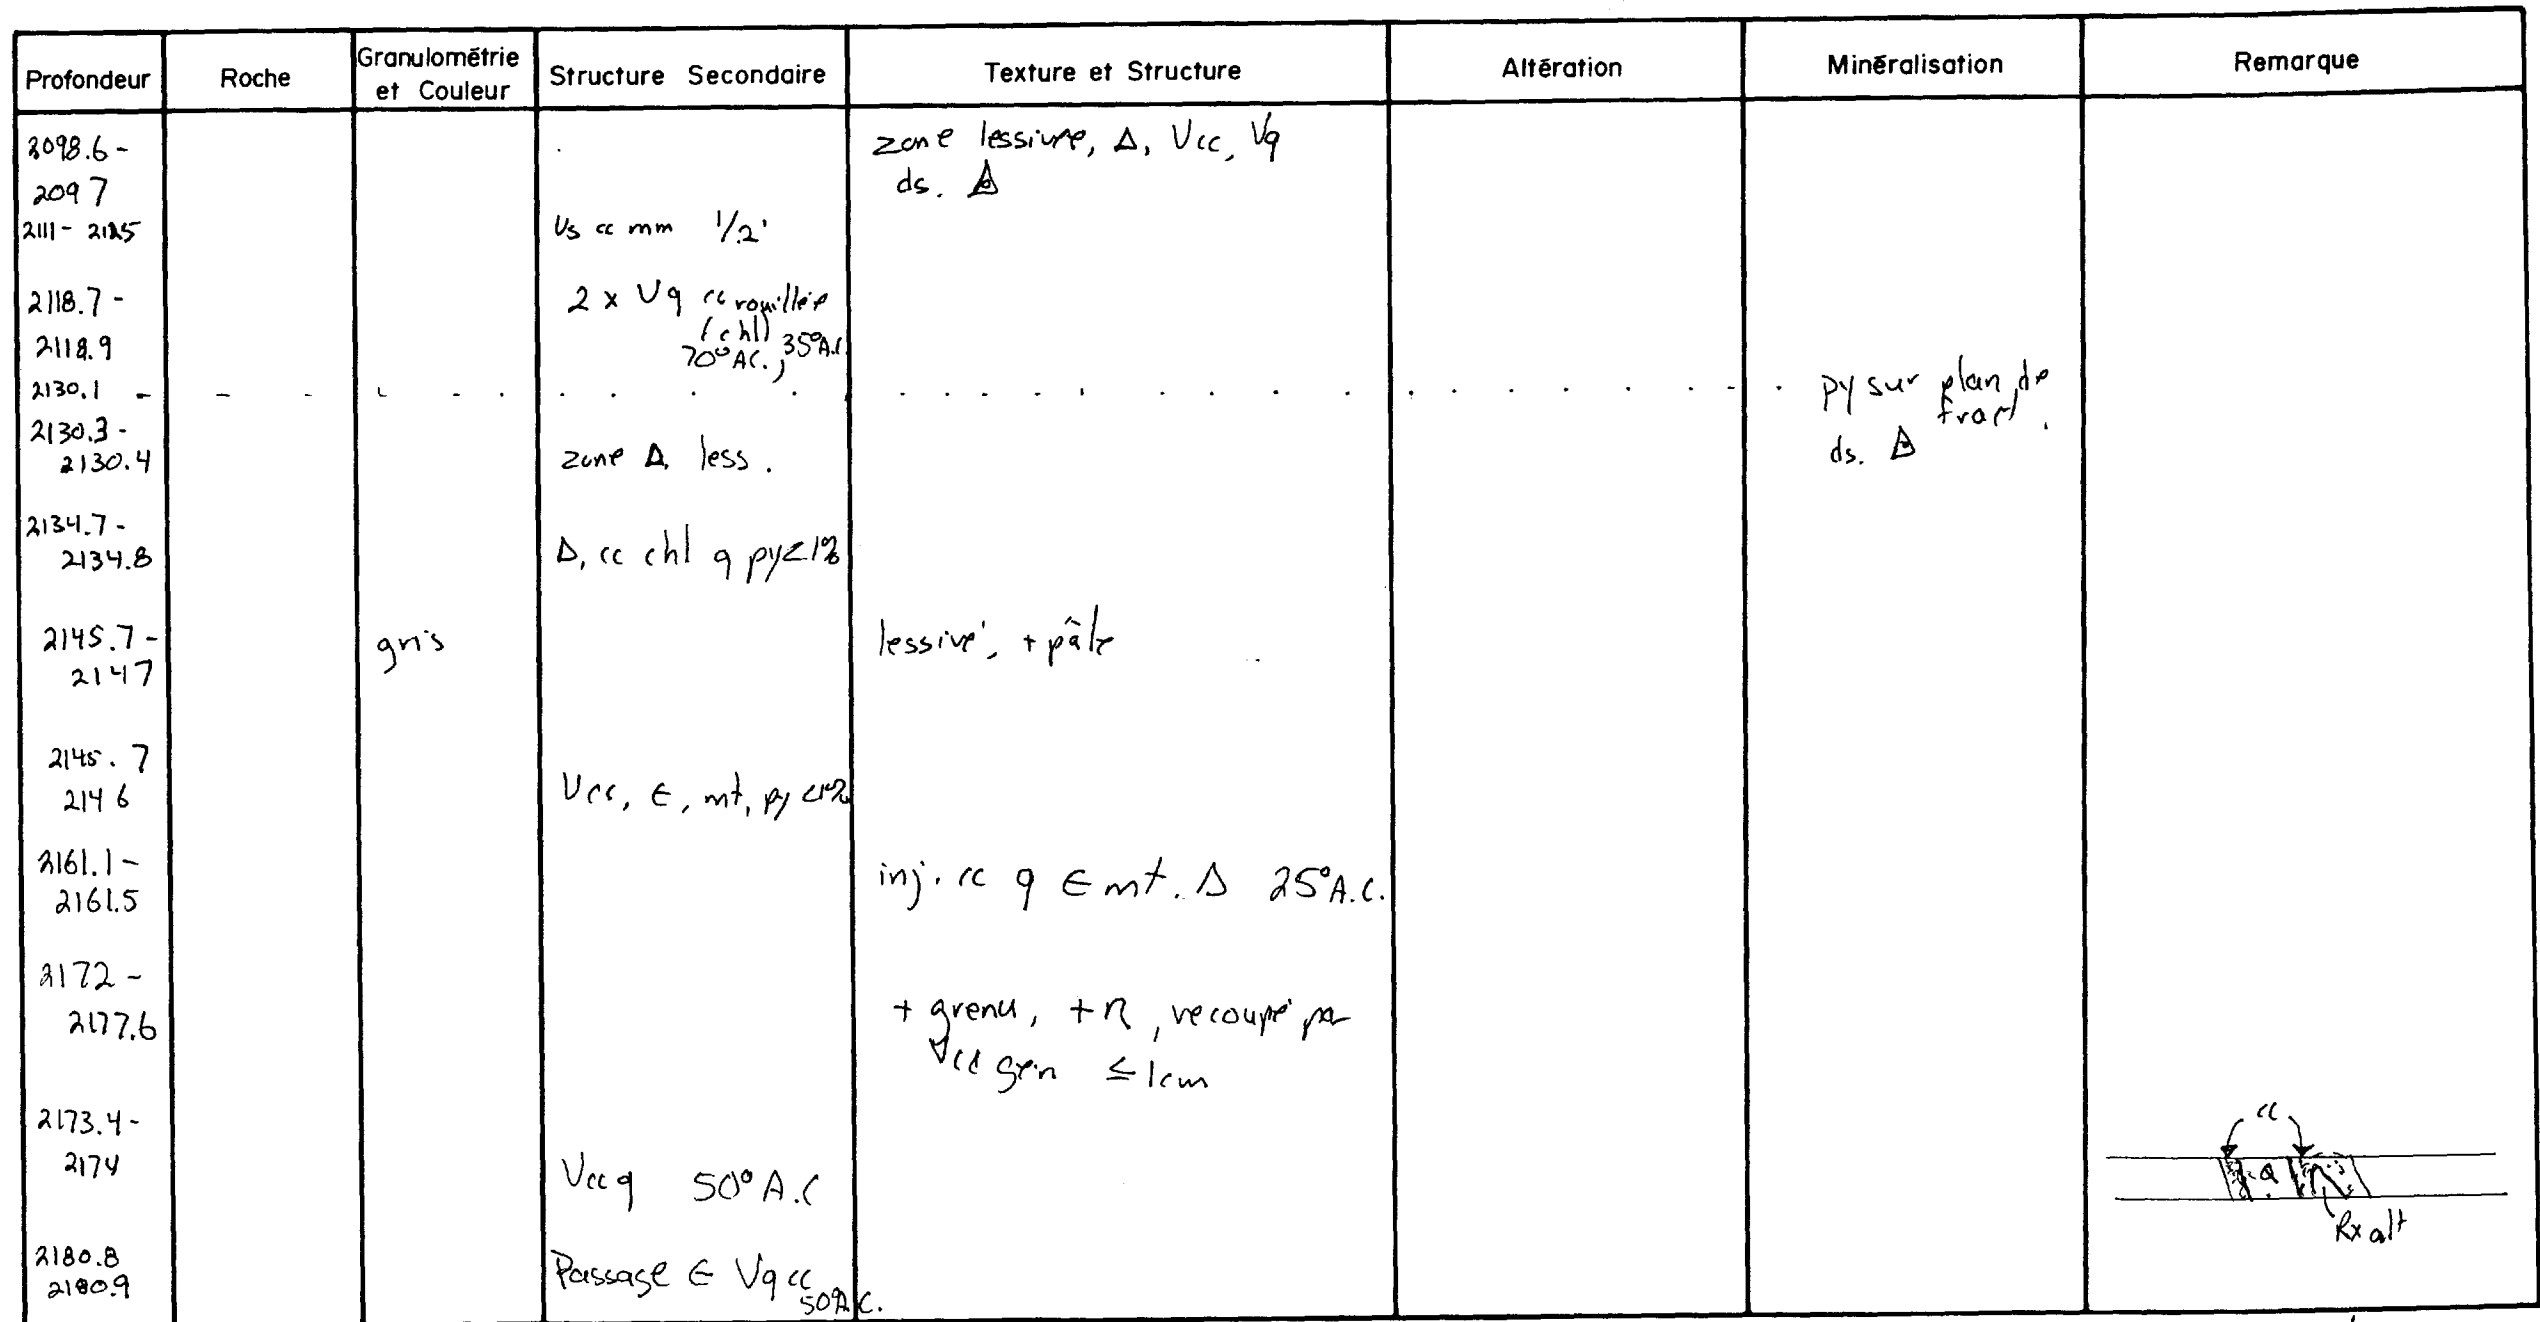 Profondeur Roche Granulométrie et Couleur Structure Secondaire Texture et Structure Altération Minéralisation Remarque
2098.6 - zone lessivée, Δ, Vcc, Vq
2097 ds. Δ
2111 - 2125 Vs cc mm 1/2'
2118.7 - 2 x Vq cc rouillée
(chl)
2118.9 70° A.C., 35° A.C.
2130.1 - py sur plan de
fract.
2130.3 - ds. Δ
2130.4 zone Δ, less.
2134.7 -
2134.8 Δ, cc chl q py<1%
2145.7 - gris lessivé, + pâle
2147
2145.7
2146 Vcc, ∈, mt, py <1%
2161.1 - inj. cc q ∈ mt. Δ 25° A.C.
2161.5
2172 -
2177.6 + grenu, + , recoupé par
Vcc gén ≤ 1cm
2173.4 - cc
2174 Vccq 50° A.C Q
Rx alt
2180.8 Passage ∈ Vq cc
2180.9 50° A.C.